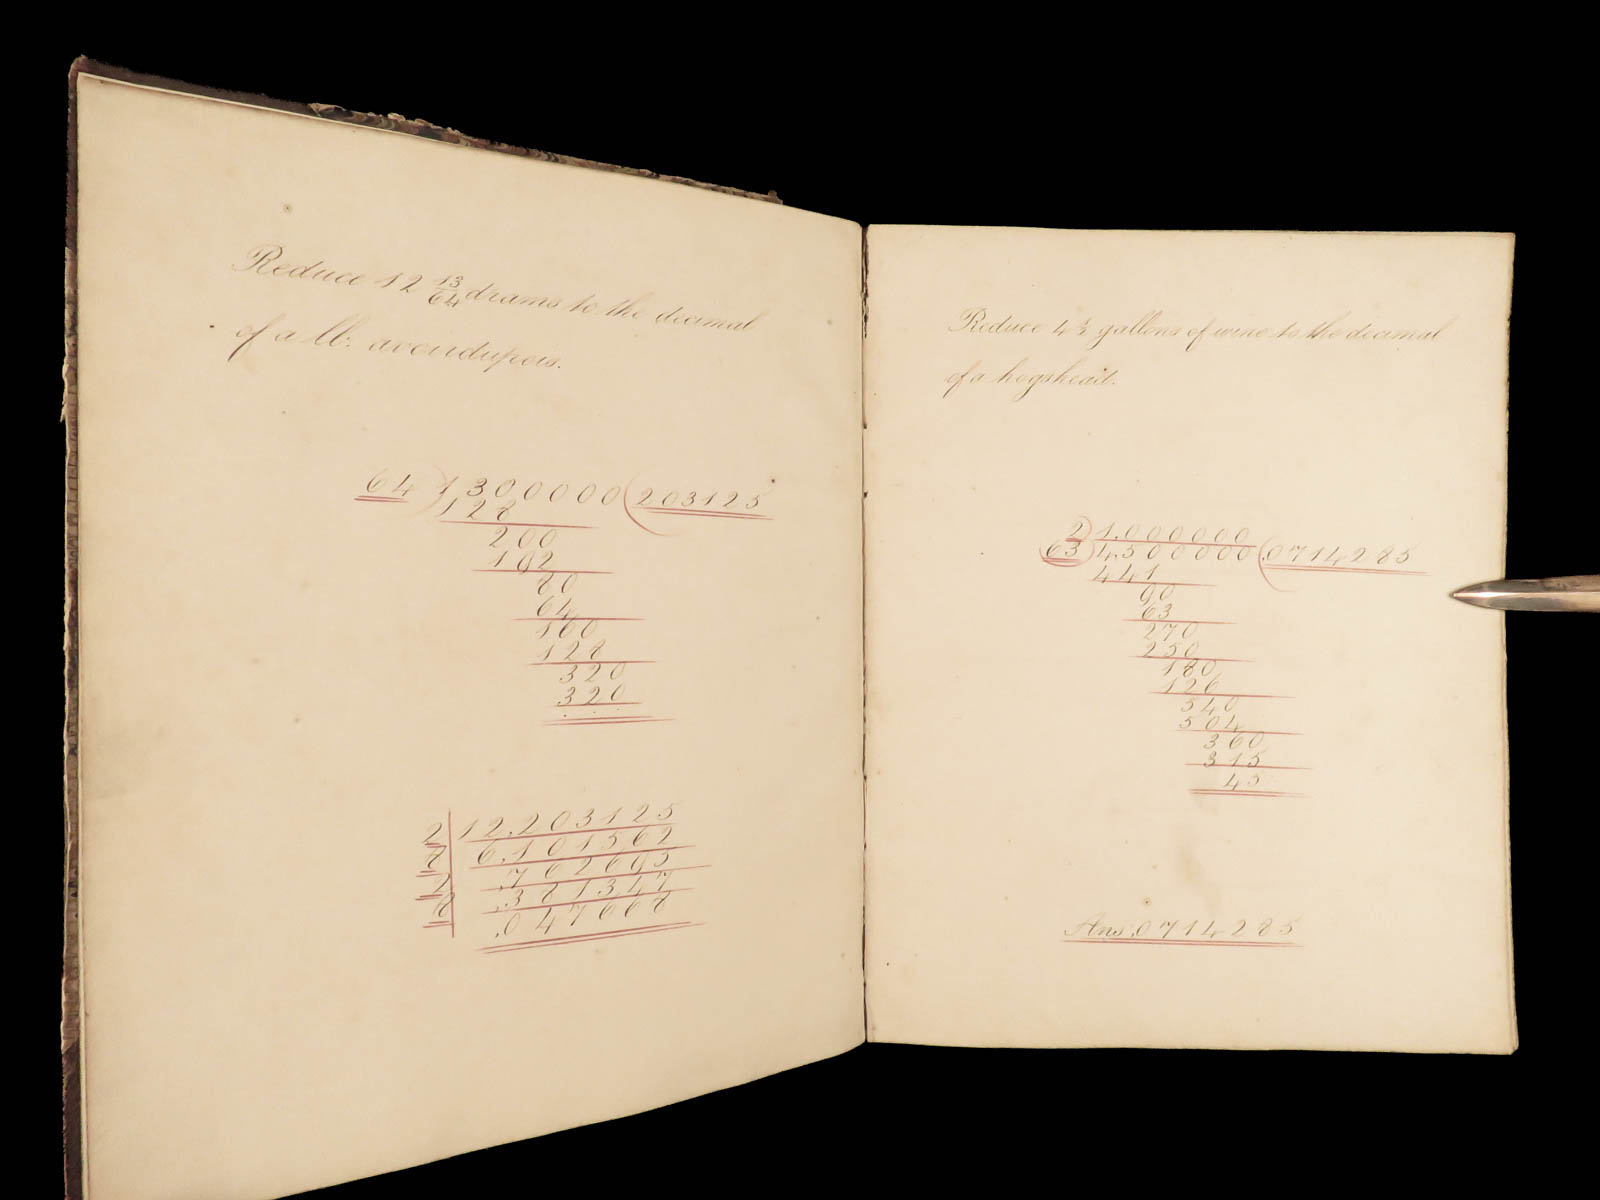 Reduce 12 13/64 drams to the decimal
of a lb. avoirdupois.
64 ) 13000000 ( 203125
128
200
192
80
64
160
128
320
320
. . .
2 | 12.203125
8 | 6.101562
2 | .762695
8 | .381347
.047668
Reduce 4½ gallons of wine to the decimal
of a hogshead.
2 ) 1.000000
63 ) 4.5000000 ( .0714285
441
90
63
270
250
180
126
540
504
360
315
45
Ans .0714285